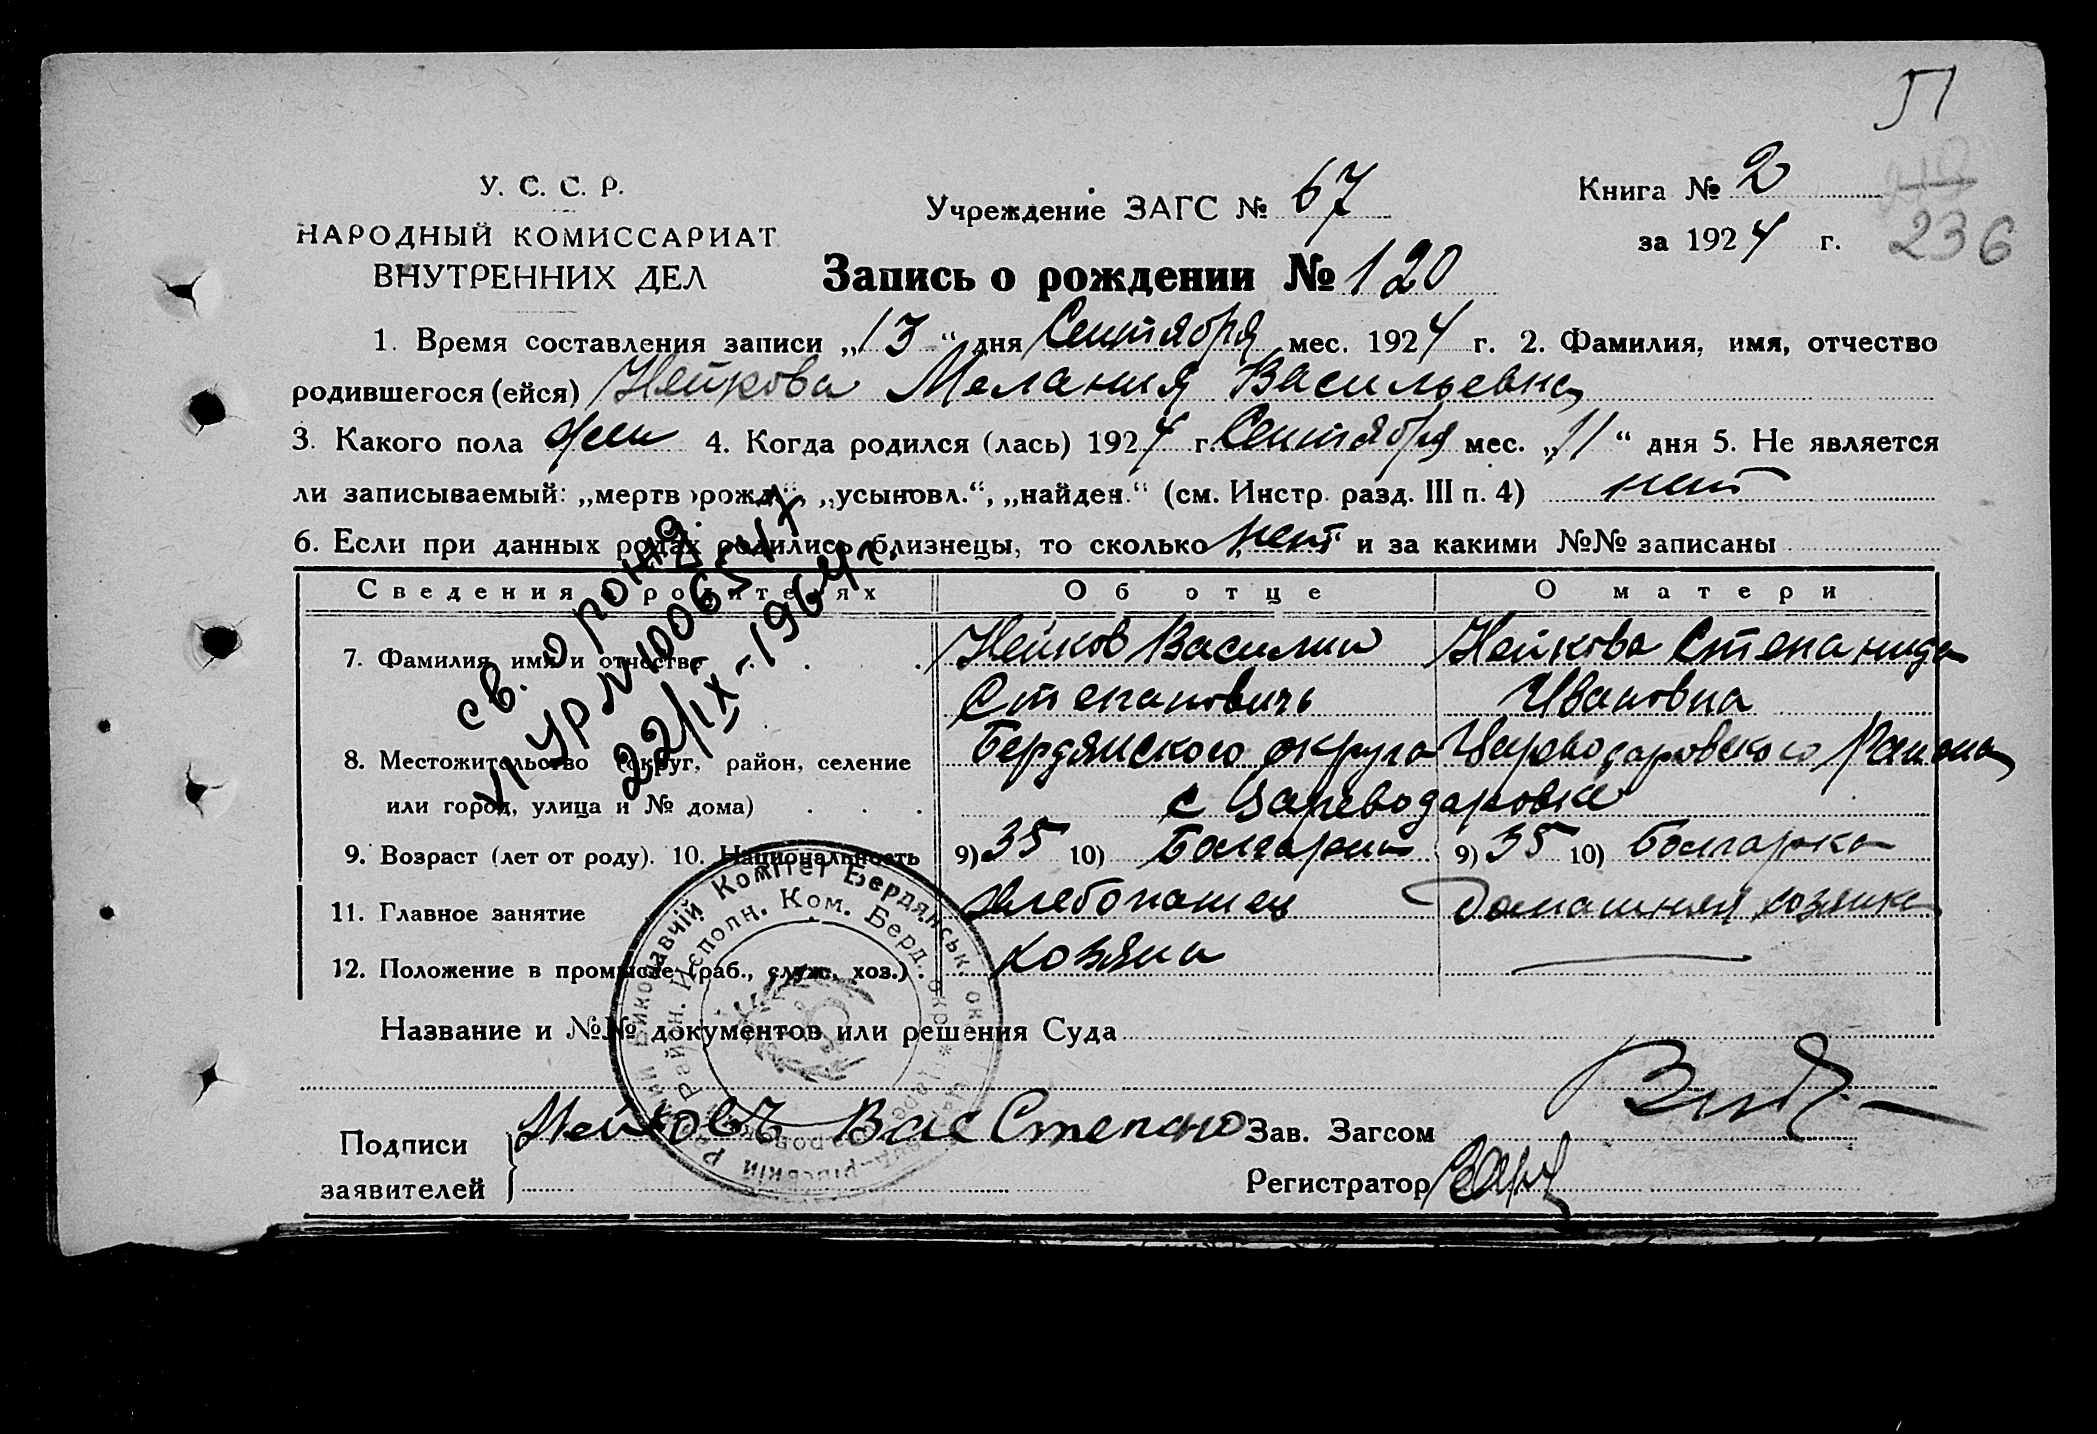 51
У. С. С. Р.
НАРОДНЫЙ КОМИССАРИАТ
ВНУТРЕННИХ ДЕЛ
Учреждение ЗАГС № 67
Книга № 2
за 1924 г.
236
Запись о рождении № 120
1. Время составления записи „13“ дня Сентября мес. 1924 г. 2. Фамилия, имя, отчество
родившегося (ейся) Нейкова Мелания Васильевна
3. Какого пола жен 4. Когда родился (лась) 1924 г. Сентября мес. „11“ дня 5. Не является
ли записываемый: „мертворожд.“, „усыновл.“, „найден.“ (см. Инстр. разд. III п. 4) нет
6. Если при данных родах родились близнецы, то сколько нет и за какими №№ записаны
св. о рожд.
VI УР № 1006517
22/IX-1964 г.
Сведения о родителях Об отце О матери
7. Фамилия, имя и отчество Нейков Василий Нейкова Степанида
Степановичь Ивановна
8. Местожительство (округ, район, селение Бердянского округа Цареводаровского Района
или город, улица и № дома) с Цареводаровка
9. Возраст (лет от роду). 10. Национальность 9) 35 10) Болгарин 9) 35 10) Болгарка
11. Главное занятие Хлебопашец Домашняя хозяйка
12. Положение в промысле (раб., служ., хоз.) хозяин
Виконавчій Комітет Бердянськ. ок
Район. Исполн. Ком. Берд. окр.
Название и №№ документов или решения Суда
Подписи
заявителей
Нейковъ Вас Степано
Зав. Загсом
Регистратор